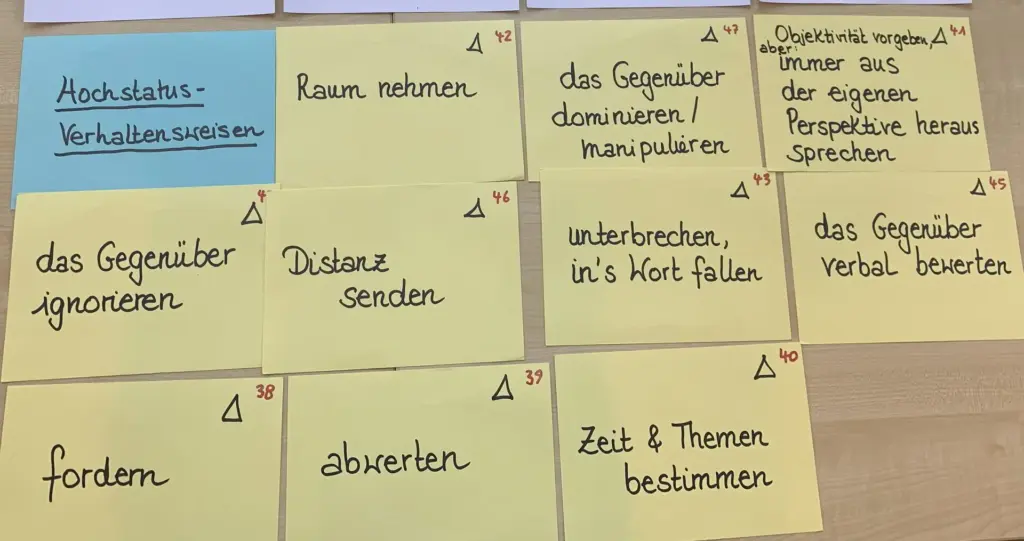 Hochstatus-
Verhaltensweisen
42
Raum nehmen
47
das Gegenüber
dominieren /
manipulieren
41
Objektivität vorgeben,
aber:
immer aus
der eigenen
Perspektive heraus
sprechen
das Gegenüber
ignorieren
46
Distanz
senden
43
unterbrechen,
in's Wort fallen
45
das Gegenüber
verbal bewerten
38
fordern
39
abwerten
40
Zeit & Themen
bestimmen